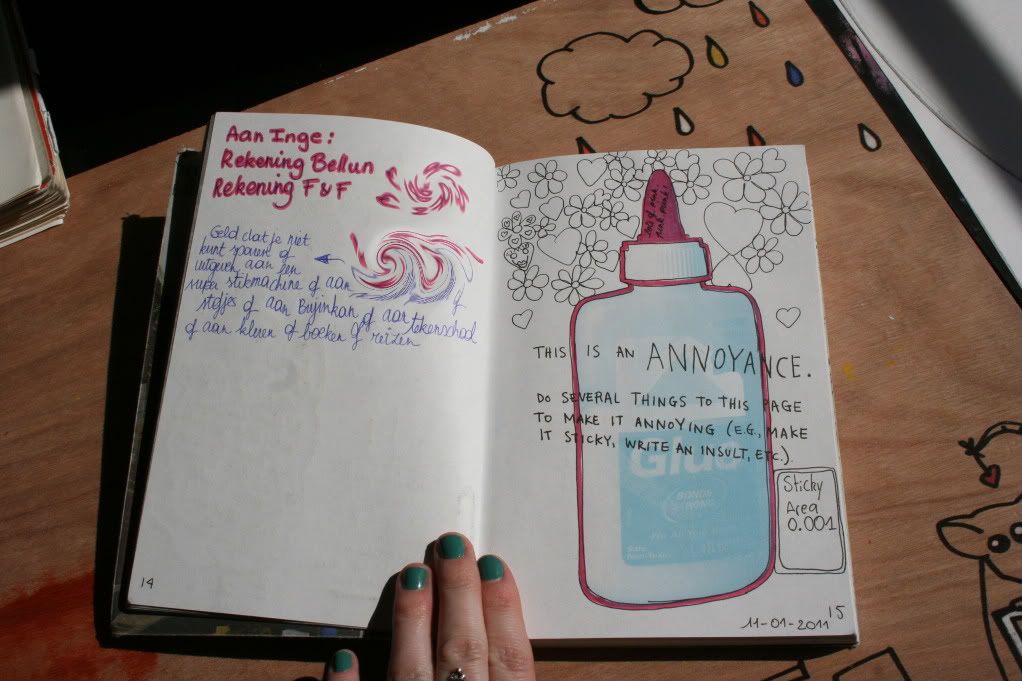 Aan Inge:
Rekening Bellun
Rekening F & F
Geld dat je niet
kunt sparen of
uitgeven aan een
super stikmachine of aan
stofjes of aan Bujinkan of aan tekenschool
of aan kleren of boeken of reizen
14
pink pink!
THIS IS AN ANNOYANCE.
DO SEVERAL THINGS TO THIS PAGE
TO MAKE IT ANNOYING (E.G., MAKE
IT STICKY, WRITE AN INSULT, ETC.).
Glue
BONDS
STRONG
Safe
Non-Toxic
Sticky
Area
0.001
11-01-2011
15